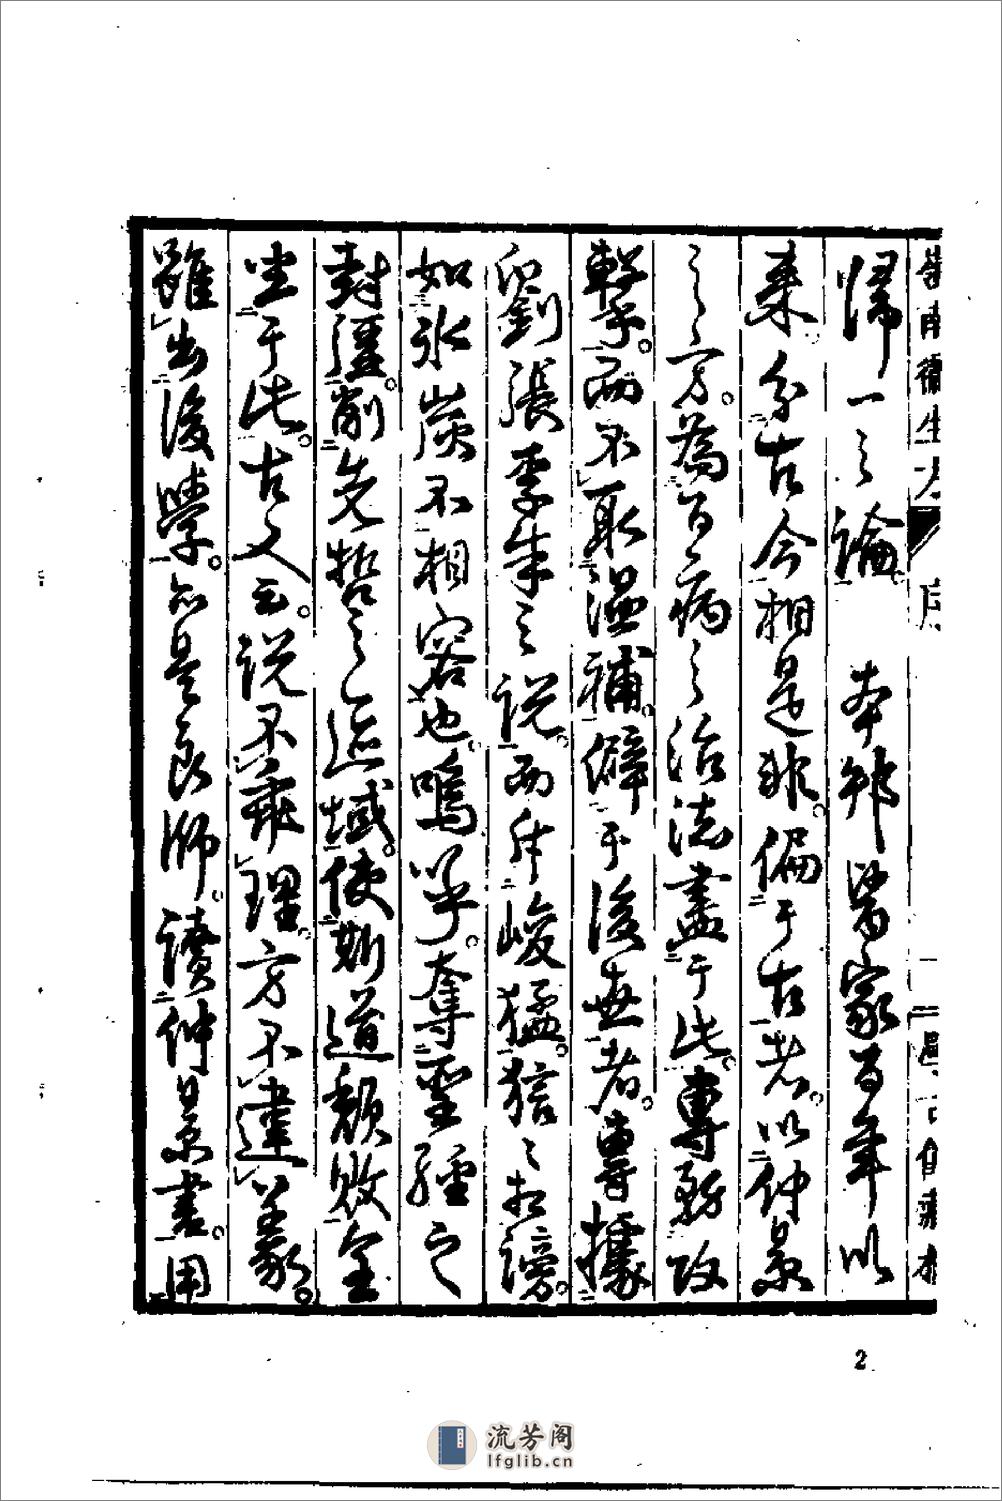 歸一之論 本邦醫家百年以
来分古今相是非偏于古者以仲景
之方為百病之治法盡于此專務攻
擊而不取溫補僻于後世者專據
劉張李朱之說而斥峻猛狺々相謗
如氷炭不相容也嗚呼奪聖經之
封疆削先哲之區域使斯道頹敗全
坐于此古人云說不乖理方不違義
雖出後學亦是良師讀仲景書用
2
流芳阁
lfglib.cn